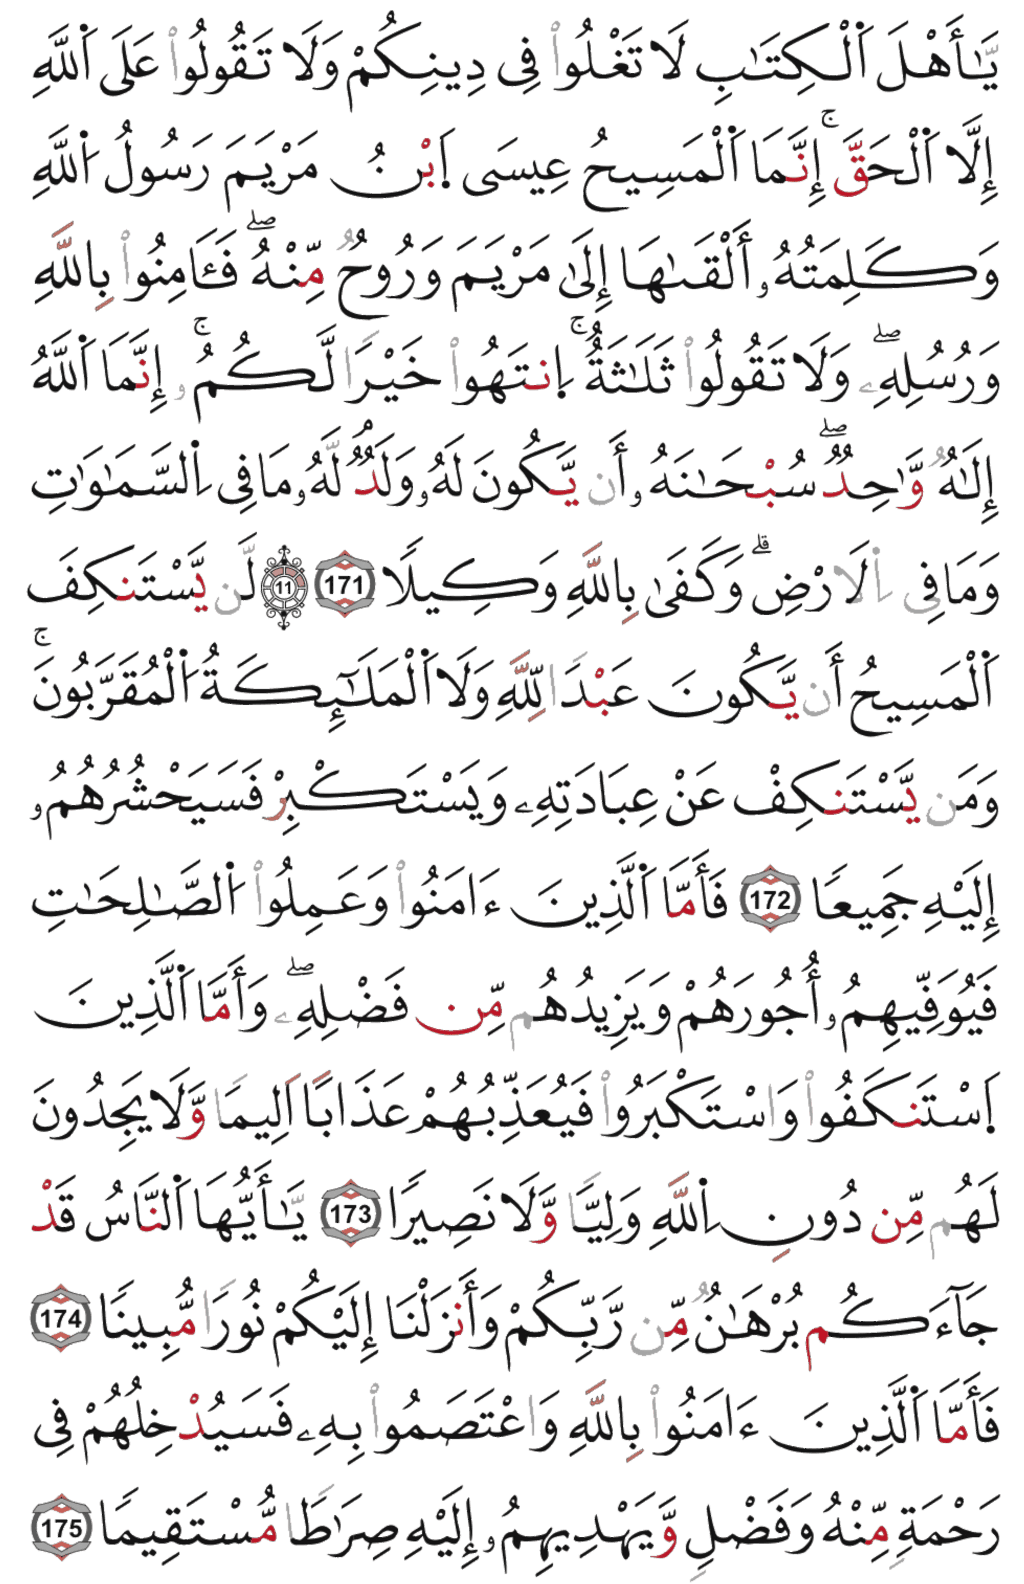 يَٰٓأَهْلَ اَ۬لْكِتَٰبِ لَا تَغْلُواْ فِى دِينِكُمْ وَلَا تَقُولُواْ عَلَى اَ۬للَّهِ
إِلَّا اَ۬لْحَقَّۚ إِنَّمَا اَ۬لْمَسِيحُ عِيسَى اَ۪بْنُ مَرْيَمَ رَسُولُ اُ۬للَّهِ
وَكَلِمَتُهُۥ أَلْقَىٰهَا إِلَىٰ مَرْيَمَ وَرُوحٌ مِّنْهُۖ فَـَٔامِنُواْ بِاللَّهِ
وَرُسُلِهِۦۖ وَلَا تَقُولُواْ ثَلَٰثَةٌۚ اِ۪نتَهُواْ خَيْرًا لَّكُمُۥٓۚ إِنَّمَا اَ۬للَّهُ
إِلَٰهٌ وَٰحِدٌۖ سُبْحَٰنَهُۥ أَن يَّكُونَ لَهُۥ وَلَدٌ لَّهُۥ مَا فِى اِ۬لسَّمَٰوَٰتِ
وَمَا فِى اِ۬لَارْضِۗ وَكَفَىٰ بِاللَّهِ وَكِيلًا 171 11 لَّن يَّسْتَنكِفَ
اَ۬لْمَسِيحُ أَن يَّكُونَ عَبْدًا لِّلَّهِ وَلَا اَ۬لْمَلَٰٓئِكَةُ اُ۬لْمُقَرَّبُونَۚ
وَمَن يَّسْتَنكِفْ عَنْ عِبَادَتِهِۦ وَيَسْتَكْبِرْ فَسَيَحْشُرُهُمُۥٓ
إِلَيْهِ جَمِيعًا 172 فَأَمَّا اَ۬لَّذِينَ ءَامَنُواْ وَعَمِلُواْ اُ۬لصَّٰلِحَٰتِ
فَيُوَفِّيهِمُۥٓ أُجُورَهُمْ وَيَزِيدُهُم مِّن فَضْلِهِۦۖ وَأَمَّا اَ۬لَّذِينَ
اَ۪سْتَنكَفُواْ وَاسْتَكْبَرُواْ فَيُعَذِّبُهُمْ عَذَابًا اَلِيمًا وَّلَا يَجِدُونَ
لَهُم مِّن دُونِ اِ۬للَّهِ وَلِيًّا وَّلَا نَصِيرًا 173 يَٰٓأَيُّهَا اَ۬لنَّاسُ قَدْ
جَآءَكُم بُرْهَٰنٌ مِّن رَّبِّكُمْ وَأَنزَلْنَا إِلَيْكُمْ نُورًا مُّبِينًا 174
فَأَمَّا اَ۬لَّذِينَ ءَامَنُواْ بِاللَّهِ وَاعْتَصَمُواْ بِهِۦ فَسَيُدْخِلُهُمْ فِى
رَحْمَةٍ مِّنْهُ وَفَضْلٍ وَّيَهْدِيهِمُۥٓ إِلَيْهِ صِرَٰطًا مُّسْتَقِيمًا 175